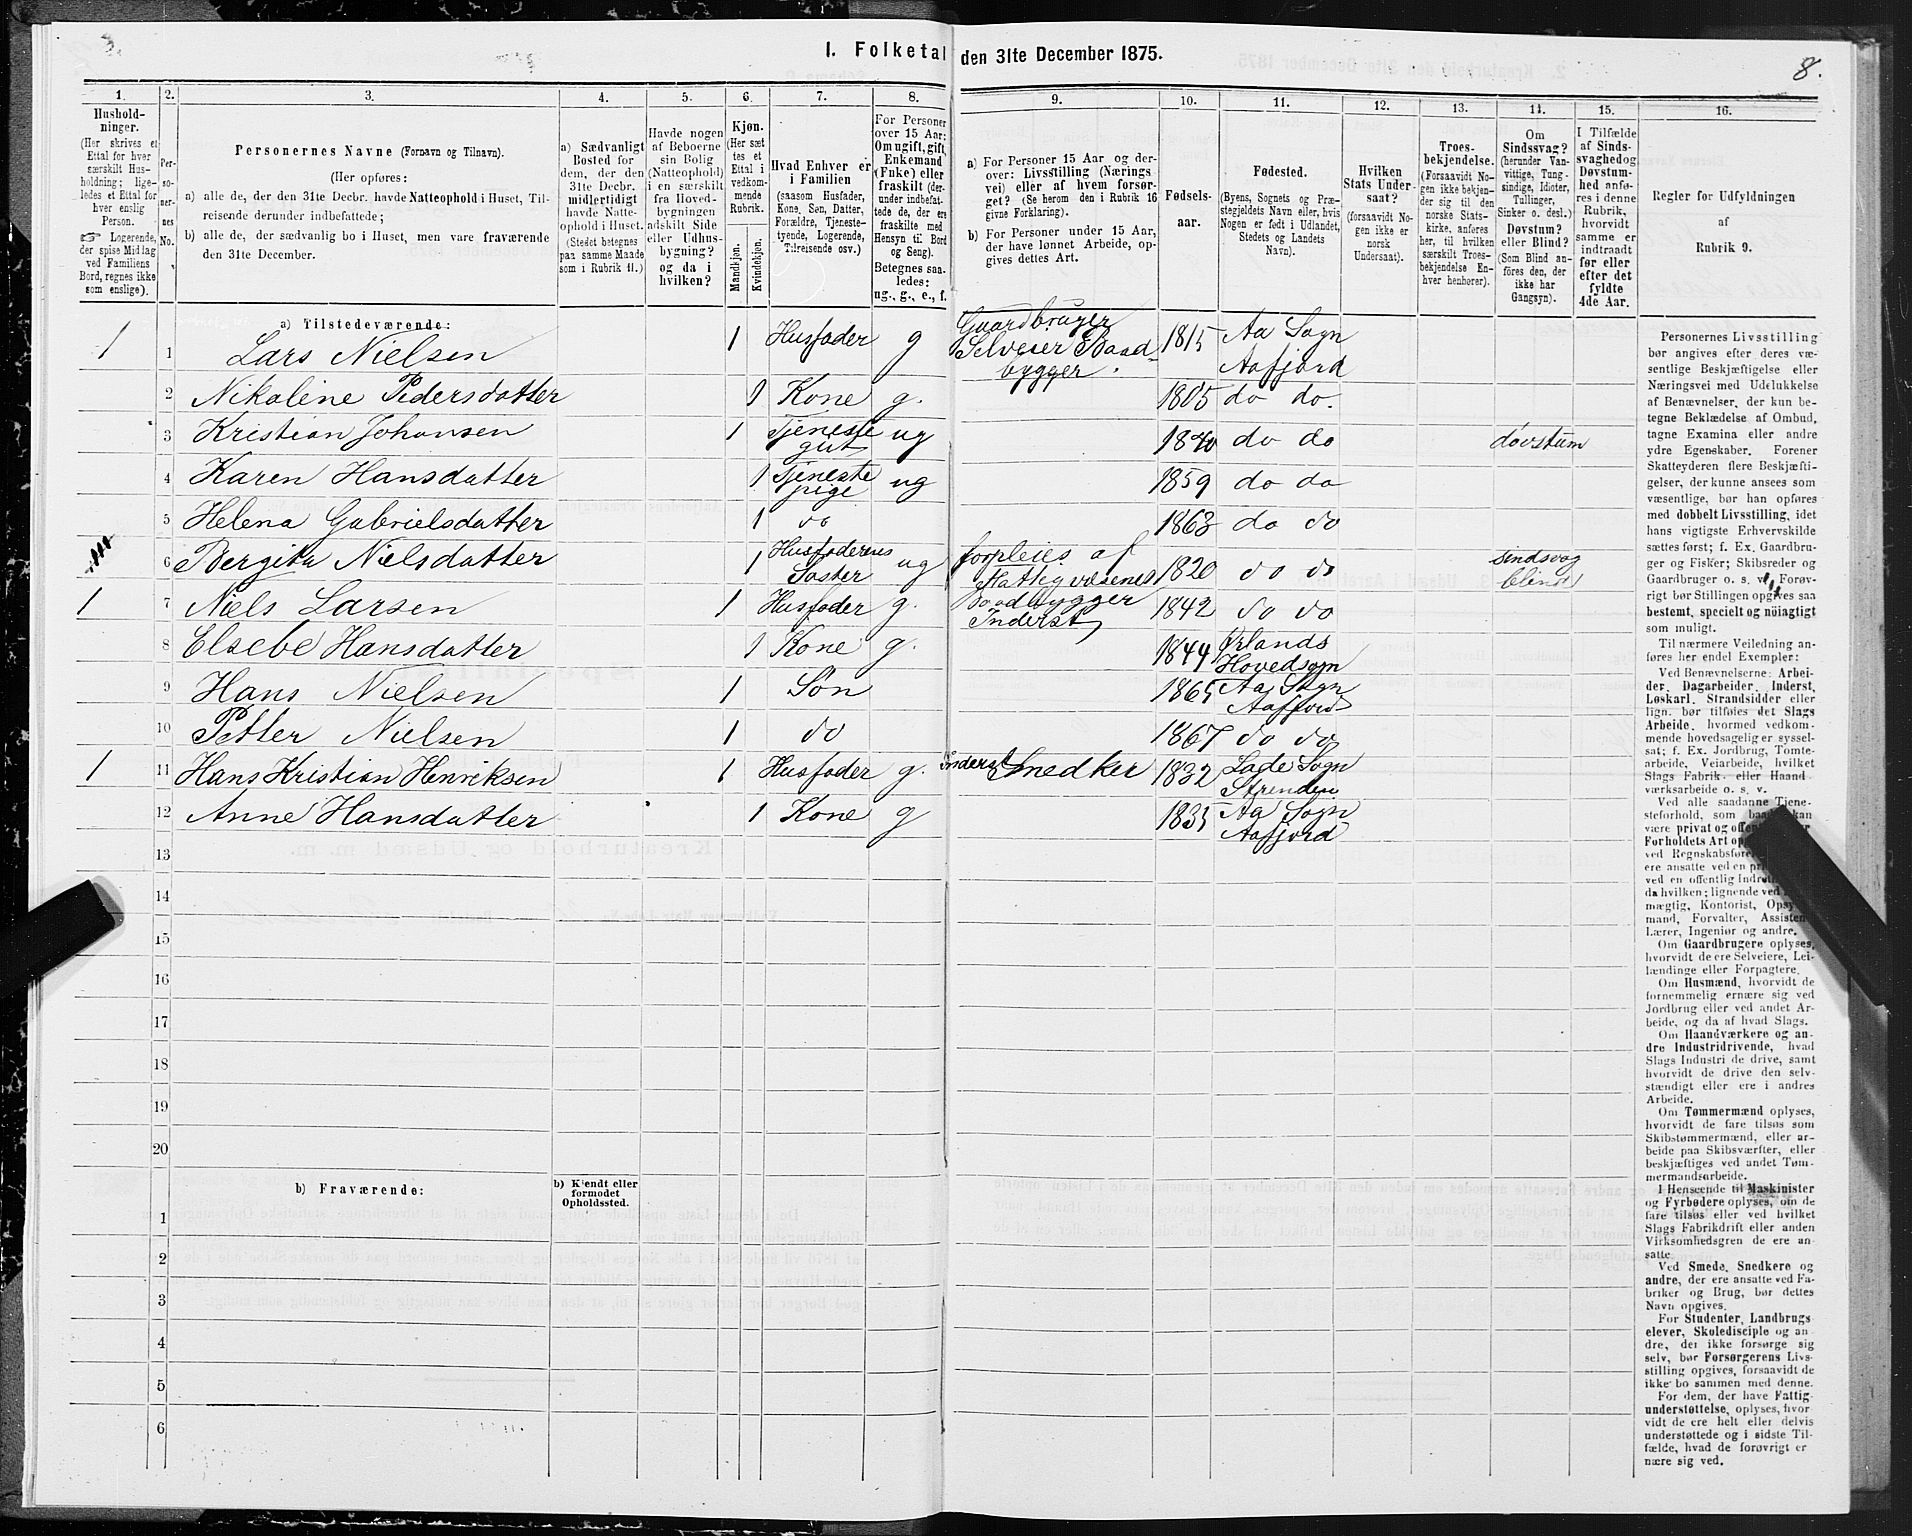 I. Folketal den 31te December 1875.
8.
1.
2.
3.
4.
5.
6.
7.
8.
9.
10.
11.
12.
13.
14.
15.
16.
Hushold-
ninger.
(Her skrives et
Ettal for hver
særskilt Hus-
holdning; lige-
ledes et Ettal for
hver enslig
Person.
☞ Logerende,
der spise Middag
ved Familiens
Bord, regnes ikke
som enslige).
Per-
so-
ner-
nes
No.
Personernes Navne (Fornavn og Tilnavn).
(Her opføres:
a) alle de, der den 31te Decbr. havde Natteophold i Huset, Til-
reisende derunder indbefattede;
b) alle de, der sædvanlig bo i Huset, men vare fraværende
den 31te December.
a) Sædvanligt
Bosted for
dem, der den
31te Decbr.
midlertidigt
havde Natte-
ophold i Huset.
(Stedet betegnes
paa samme Maade
som i Rubrik 11.)
Havde nogen
af Beboerne
sin Bolig
(Natteophold)
i en særskilt
fra Hoved-
bygningen
adskilt Side
eller Udhus-
bygning?
og da i
hvilken?
Kjøn.
(Her sæt
tes et
Ettal i
vedkom-
mende
Rubrik.
Mandkjøn.
Kvindekjøn.
Hvad Enhver er
i Familien
(saasom Husfader,
Kone, Søn, Datter,
Forældre, Tjeneste-
tyende, Logerende,
Tilreisende osv.)
For Personer
over 15 Aar:
Om ugift, gift,
Enkemand
(Enke) eller
fraskilt (der-
under indbefat-
tede de, der ere
fraskilte med
Hensyn til Bord
og Seng).
Betegnes saa-
ledes:
ug., g., e., f.
a) For Personer 15 Aar og der-
over: Livsstilling (Nærings
vei) eller af hvem forsør-
get? (Se herom den i Rubrik 16
givne Forklaring).
b) For Personer under 15 Aar,
der have lønnet Arbeide, op-
gives dettes Art.
Fødsels-
aar.
Fødested.
(Byens, Sognets og Præ-
stegjeldets Navn eller, hvis
Nogen er født i Udlandet,
Stedets og Landets
Navn).
Hvilken
Stats Under-
saat?
(forsaavidt No-
gen ikke er
norsk
Undersaat).
Troes-
bekjendelse.
(Forsaavidt No-
gen ikke bekjen-
der sig til den
norske Stats-
kirke, anføres
her, til hvilken
særskilt Troes-
bekjendelse En-
hver henhører).
Om
Sindssvag?
(herunder Van-
vittige, Tung-
sindige, Idioter,
Tullinger,
Sinker o. desl.)
Døvstum?
eller Blind?
(Som Blind an-
føres den, der
ikke har
Gangsyn).
I Tilfælde
af Sinds-
svaghedog
Døvstum-
hed anfø-
res i denne
Rubrik,
hvorvidt
samme er
indtraadt
før eller
efter det
fyldte
4de Aar.
Regler for Udfyldningen
af
Rubrik 9.
a) Tilstedeværende:
1 1 Lars Nielsen 1 Husfader g Gaardbruger Selveier Baadbygger. 1815 Aa Sogn Aafjord
2 Nikoline Pedersdatter 1 Kone g. 1805 do do.
3 Kristian Johansen 1 Tjeneste gut ug 1840 do do døvstum
4 Karen Hansdatter 1 Tjeneste pige ug 1859 do do
5 Helena Gabrielsdatter 1 do 1863 do do
6 Bergita Nielsdatter 1 Husfaderens Søster ug forpleies af Fattigvæsenet 1820 do do sindsvag blind
1 7 Niels Larsen 1 Husfader g. Baadbygger Inderst 1842 do do
8 Elsebe Hansdatter 1 Kone g. 1844 Ørlands Hovedsogn
9 Hans Nielsen 1 Søn 1865 Aa Sogn Aafjord
10 Petter Nielsen 1 do 1867 do do
1 11 Hans Kristian Henriksen 1 Husfader g. Inderst Snedker 1832 Lade Sogn Strinden
12 Anne Hansdatter 1 Kone g 1835 Aa Sogn Aafjord
13
14
15
16
17
18
19
20
b) Fraværende:
b) Kjendt eller
formodet
Opholdssted.
1
2
3
4
5
6
Personernes Livsstilling
bør angives efter deres væ-
sentlige Beskjæftigelse eller
Næringsvei med Udelukkelse
af Benævnelser, der kun be-
tegne Beklædelse af Ombud,
tagne Examina eller andre
ydre Egenskaber. Forener
Skatteyderen flere Beskjæfti-
gelser, der kunne ansees som
væsentlige, bør han opføres
med dobbelt Livsstilling, idet
hans vigtigste Erhvervskilde
sættes først; f. Ex. Gaardbru-
ger og Fisker; Skibsreder og
Gaardbruger o. s. v. Forøv-
rigt bør Stillingen opgives saa
bestemt, specielt og nöiagtigt
som muligt.
Til nærmere Veiledning an-
føres her endel Exempler:
Ved Benævnelserne: Arbei-
der, Dagarbeider, Inderst,
Løskarl, Strandsidder eller
lign. bør tilføies det Slags
Arbeide, hvormed vedkom-
mende hovedsagelig er syssel-
sat; f. Ex. Jordbrug, Tomte-
arbeide, Veiarbeide, hvilket
Slags Fabrik- eller Haand
værksarbeide o. s. v.
Ved alle saadanne Tjene-
steforhold, som baade kan
være privat og offentligt, bør
Forholdets Art op
ved Regnskabsføre
ere ansatte ved en pri
ved en offentlig Indret
da hvilken; lignende ved
mægtig, Kontorist, Opsy
mand, Forvalter, Assistent,
Lærer, Ingeniør og andre.
Om Gaardbrugere oplyses,
hvorvidt de ere Selveiere, Lei-
lændinge eller Forpagtere.
Om Husmænd, hvorvidt de
fornemmelig ernære sig ved
Jordbrug eller ved andet Ar-
beide, og da af hvad Slags.
Om Haandværkere og an-
dre Industridrivende, hvad
Slags Industri de drive, samt
hvorvidt de drive den selv-
stændigt eller ere i andres
Arbeide.
Om Tømmermænd oplyses,
hvorvidt de fare tilsøs som
Skibstømmermænd, eller ar-
beide paa Skibsværfter, eller
beskjæftiges ved andet Tøm-
mermandsarbeide.
I Henseende til Maskinister
og Fyrbødere oplyses, om de
fare tilsøs eller ved hvilket
Slags Fabrikdrift eller anden
Virksomhedsgren de ere an-
satte.
Ved Smede, Snedkere og
andre, der ere ansatte ved Fa-
briker og Brug, bør dettes
Navn opgives.
For Studenter, Landbrugs-
elever, Skoledisciple og an-
dre, der ikke forsørge sig
selv, bør Forsørgerens Livs-
stilling opgives, forsaavidt de
ikke bo sammen med denne.
For dem, der have Fattig-
understøttelse, oplyses, hvor-
vidt de ere helt eller delvis
understøttede og i sidste Til-
fælde, hvad de forøvrigt er
nære sig ved.